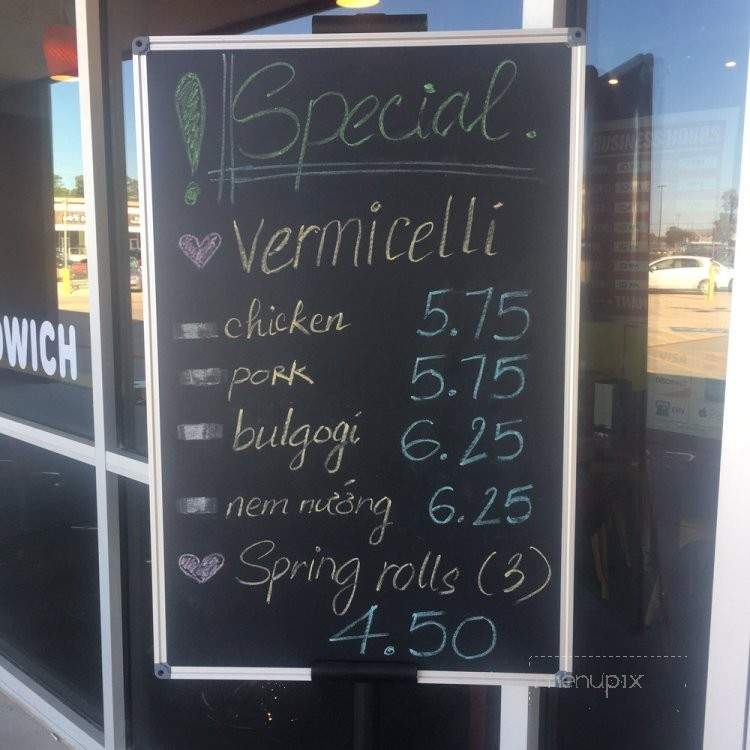 ! Special.
Vermicelli
chicken 5.75
pork 5.75
bulgogi 6.25
nem nướng 6.25
Spring rolls (3)
4.50
DWICH
BUSINESS HOURS
VISA
menupix